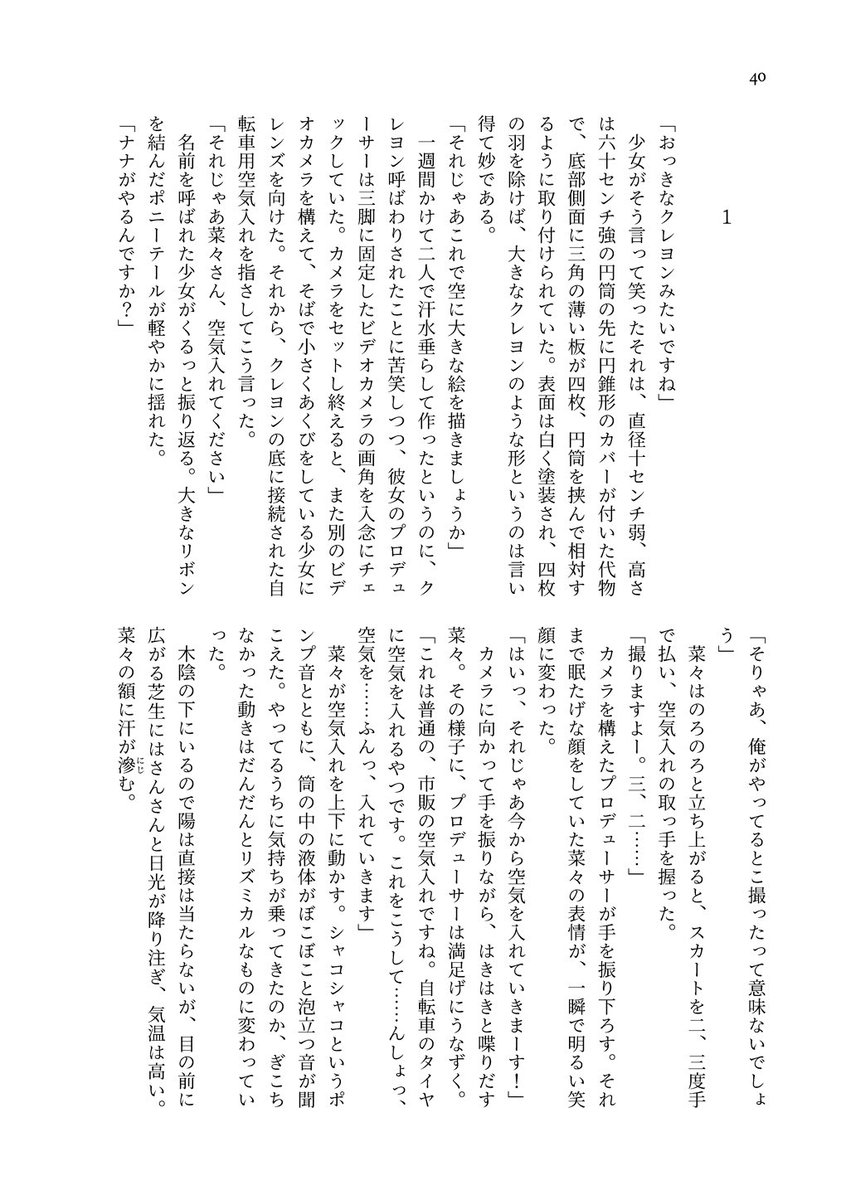 40
1
「おっきなクレヨンみたいですね」
　少女がそう言って笑ったそれは、直径十センチ弱、高さ
は六十センチ強の円筒の先に円錐形のカバーが付いた代物
で、底部側面に三角の薄い板が四枚、円筒を挟んで相対す
るように取り付けられていた。表面は白く塗装され、四枚
の羽を除けば、大きなクレヨンのような形というのは言い
得て妙である。
「それじゃあこれで空に大きな絵を描きましょうか」
　一週間かけて二人で汗水垂らして作ったというのに、ク
レヨン呼ばわりされたことに苦笑しつつ、彼女のプロデュ
ーサーは三脚に固定したビデオカメラの画角を入念にチェ
ックしていた。カメラをセットし終えると、また別のビデ
オカメラを構えて、そばで小さくあくびをしている少女に
レンズを向けた。それから、クレヨンの底に接続された自
転車用空気入れを指さしてこう言った。
「それじゃあ菜々さん、空気入れてください」
　名前を呼ばれた少女がくるっと振り返る。大きなリボン
を結んだポニーテールが軽やかに揺れた。
「ナナがやるんですか？」
「そりゃあ、俺がやってるとこ撮ったって意味ないでしょ
う」
　菜々はのろのろと立ち上がると、スカートを二、三度手
で払い、空気入れの取っ手を握った。
「撮りますよー。三、二……」
　カメラを構えたプロデューサーが手を振り下ろす。それ
まで眠たげな顔をしていた菜々の表情が、一瞬で明るい笑
顔に変わった。
「はいっ、それじゃあ今から空気を入れていきまーす！」
　カメラに向かって手を振りながら、はきはきと喋りだす
菜々。その様子に、プロデューサーは満足げにうなずく。
「これは普通の、市販の空気入れですね。自転車のタイヤ
に空気を入れるやつです。これをこうして……んしょっ、
空気を……ふんっ、入れていきます」
　菜々が空気入れを上下に動かす。シャコシャコというポ
ンプ音とともに、筒の中の液体がぼこぼこと泡立つ音が聞
こえた。やってるうちに気持ちが乗ってきたのか、ぎこち
なかった動きはだんだんとリズミカルなものに変わってい
った。
　木陰の下にいるので陽は直接は当たらないが、目の前に
広がる芝生にはさんさんと日光が降り注ぎ、気温は高い。
菜々の額に汗が滲む。
にじ